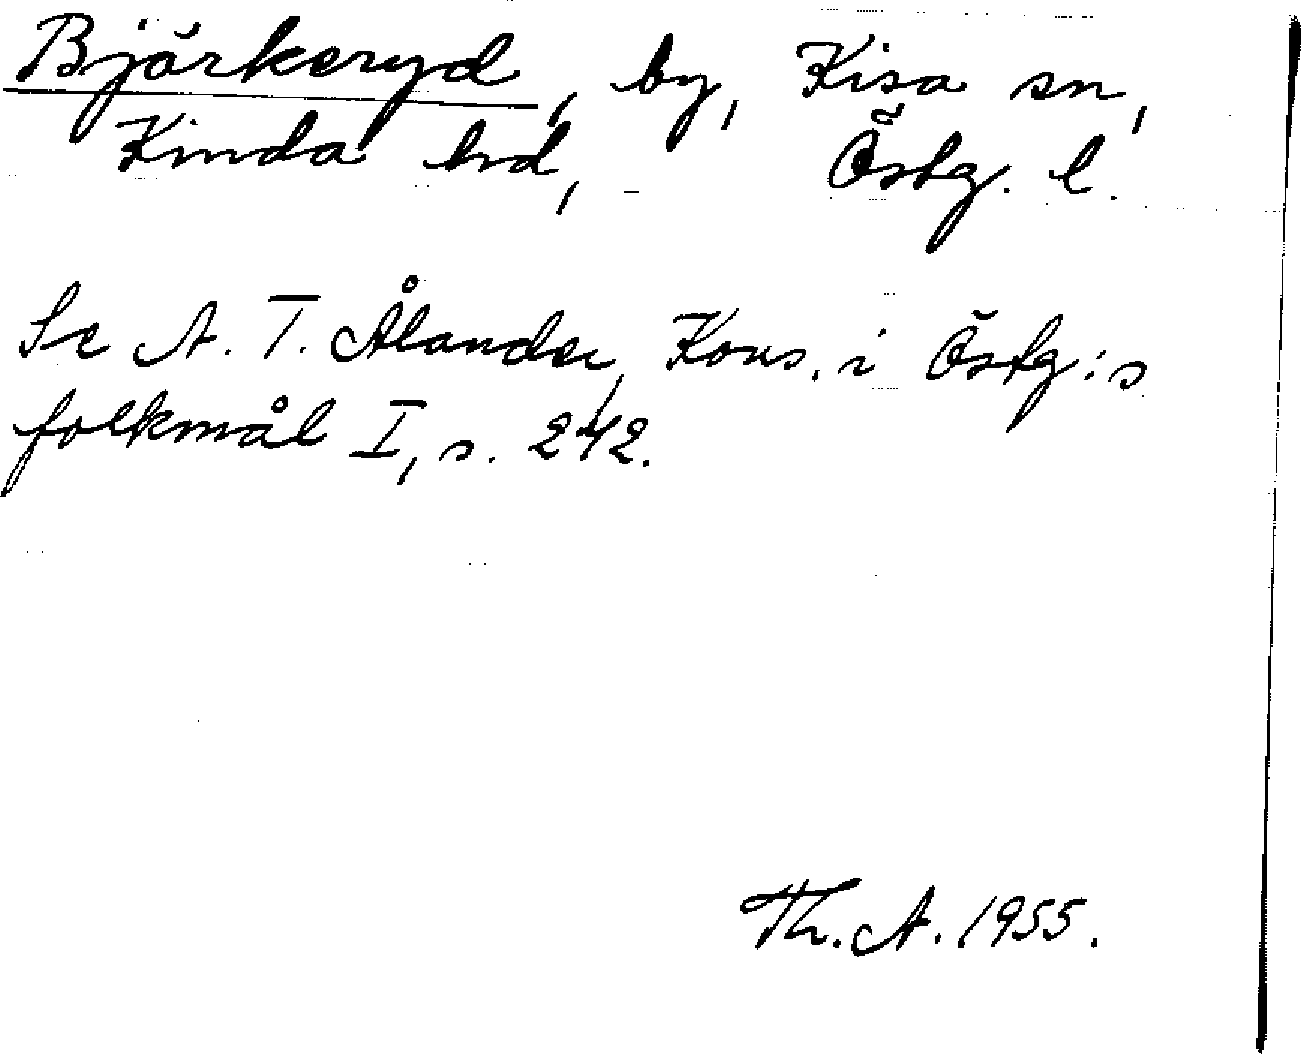 Bjärkeryd, by, Kisa sn,
Kinda hd, Östg. l.
Se A. T. Ålander, Kons. i Östg:s
folkmål I, s. 242.
Th. A. 1955.